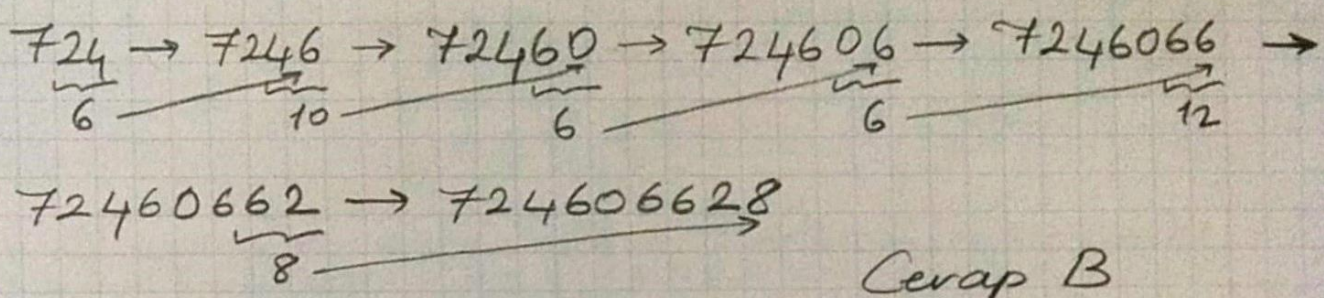 724 → 7246 → 72460 → 724606 → 7246066 →
6 10 6 6 12
72460662 → 724606628
8
Cevap B